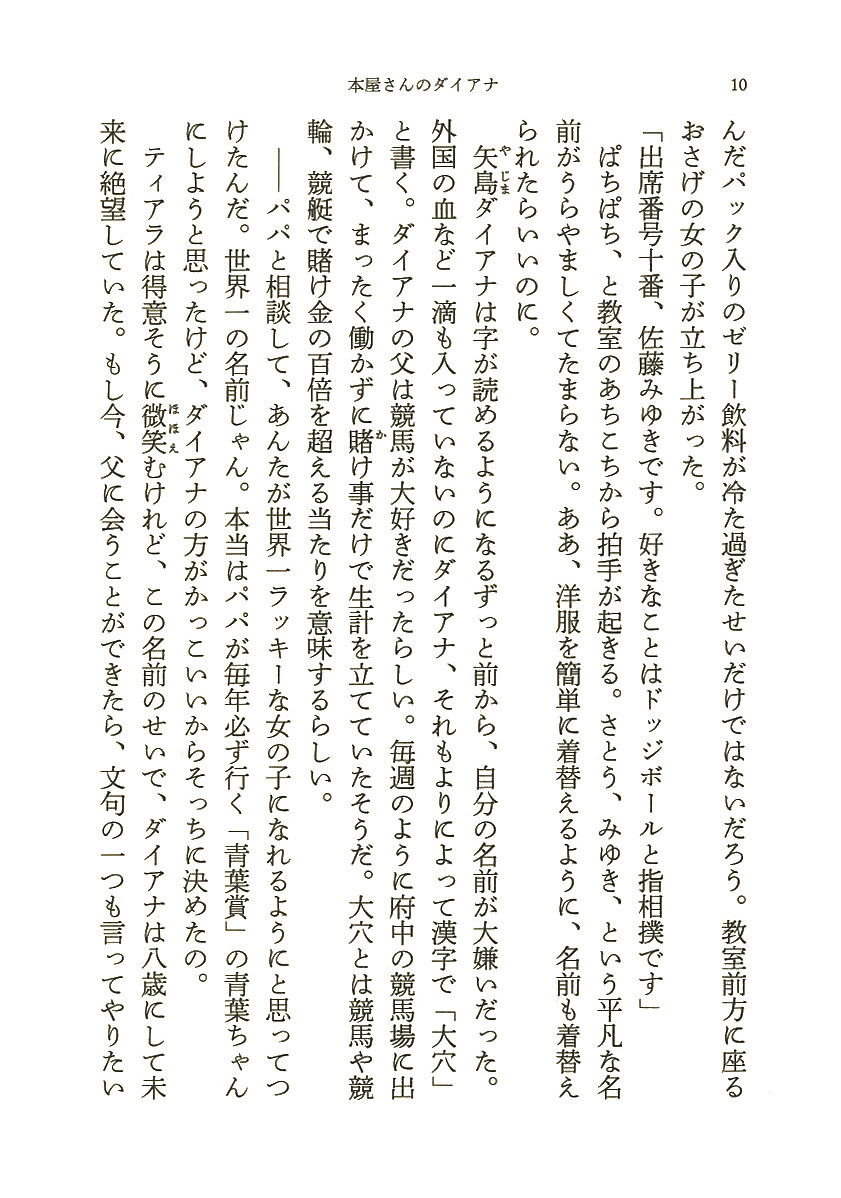 本屋さんのダイアナ
10
んだパック入りのゼリー飲料が冷た過ぎたせいだけではないだろう。教室前方に座る
おさげの女の子が立ち上がった。
「出席番号十番、佐藤みゆきです。好きなことはドッジボールと指相撲です」
ぱちぱち、と教室のあちこちから拍手が起きる。さとう、みゆき、という平凡な名
前がうらやましくてたまらない。ああ、洋服を簡単に着替えるように、名前も着替え
られたらいいのに。
矢島ダイアナは字が読めるようになるずっと前から、自分の名前が大嫌いだった。
外国の血など一滴も入っていないのにダイアナ、それもよりによって漢字で「大穴」
と書く。ダイアナの父は競馬が大好きだったらしい。毎週のように府中の競馬場に出
かけて、まったく働かずに賭け事だけで生計を立てていたそうだ。大穴とは競馬や競
輪、競艇で賭け金の百倍を超える当たりを意味するらしい。
――パパと相談して、あんたが世界一ラッキーな女の子になれるようにと思ってつ
けたんだ。世界一の名前じゃん。本当はパパが毎年必ず行く「青葉賞」の青葉ちゃん
にしようと思ったけど、ダイアナの方がかっこいいからそっちに決めたの。
ティアラは得意そうに微笑むけれど、この名前のせいで、ダイアナは八歳にして未
来に絶望していた。もし今、父に会うことができたら、文句の一つも言ってやりたい